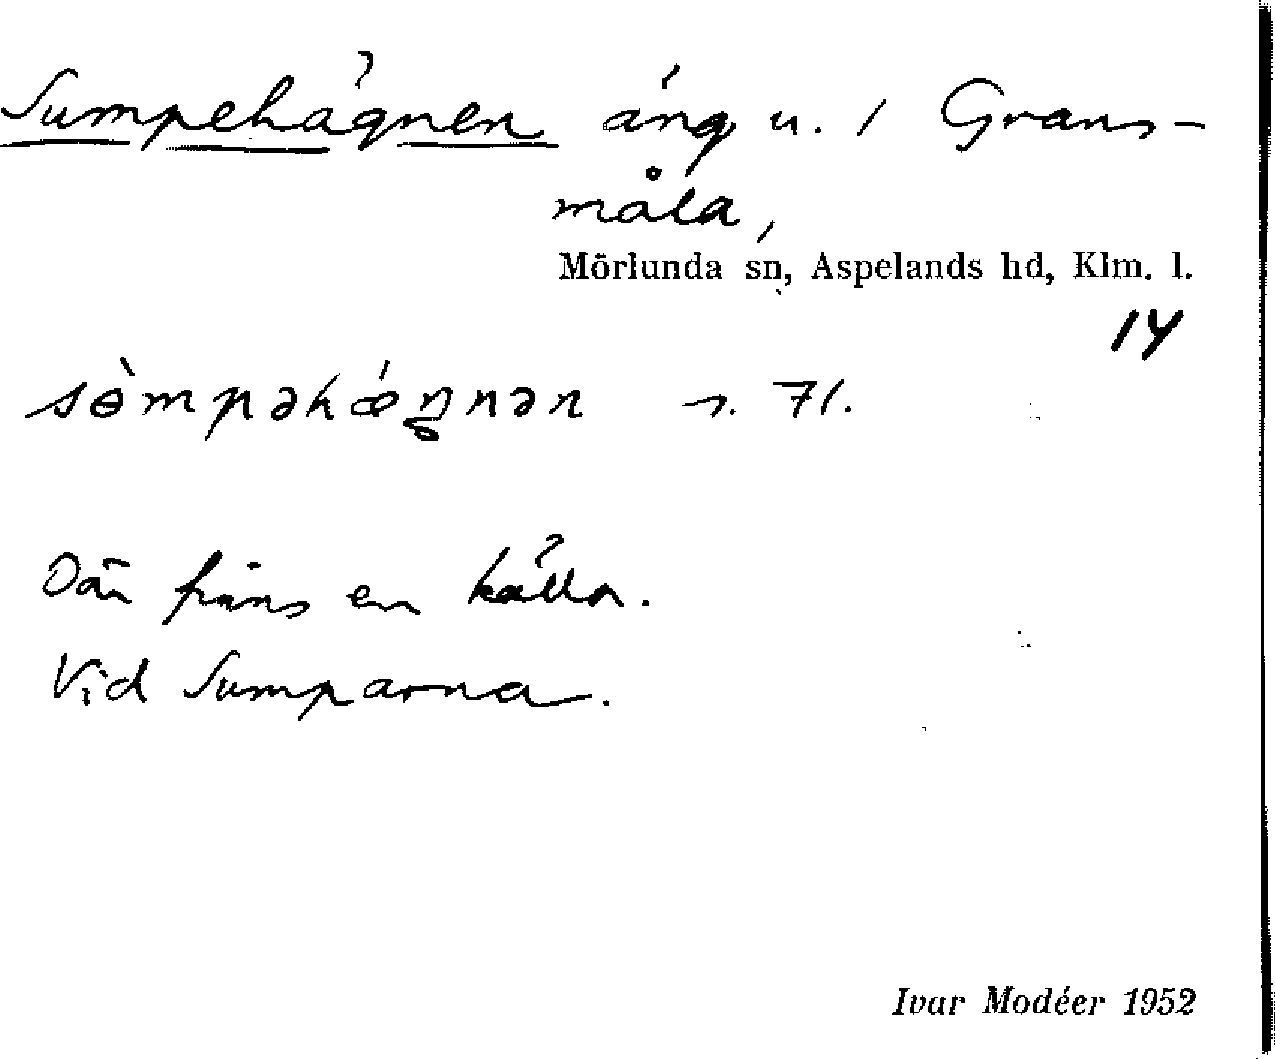 Sumpehägnen äng u. 1 Grans-
måla,
Mörlunda sn, Aspelands hd, Klm. l.
14
sɵ̀mpəhǽŋnən n. 71.
Där finns en källa.
Vid Sumparna.
Ivar Modéer 1952